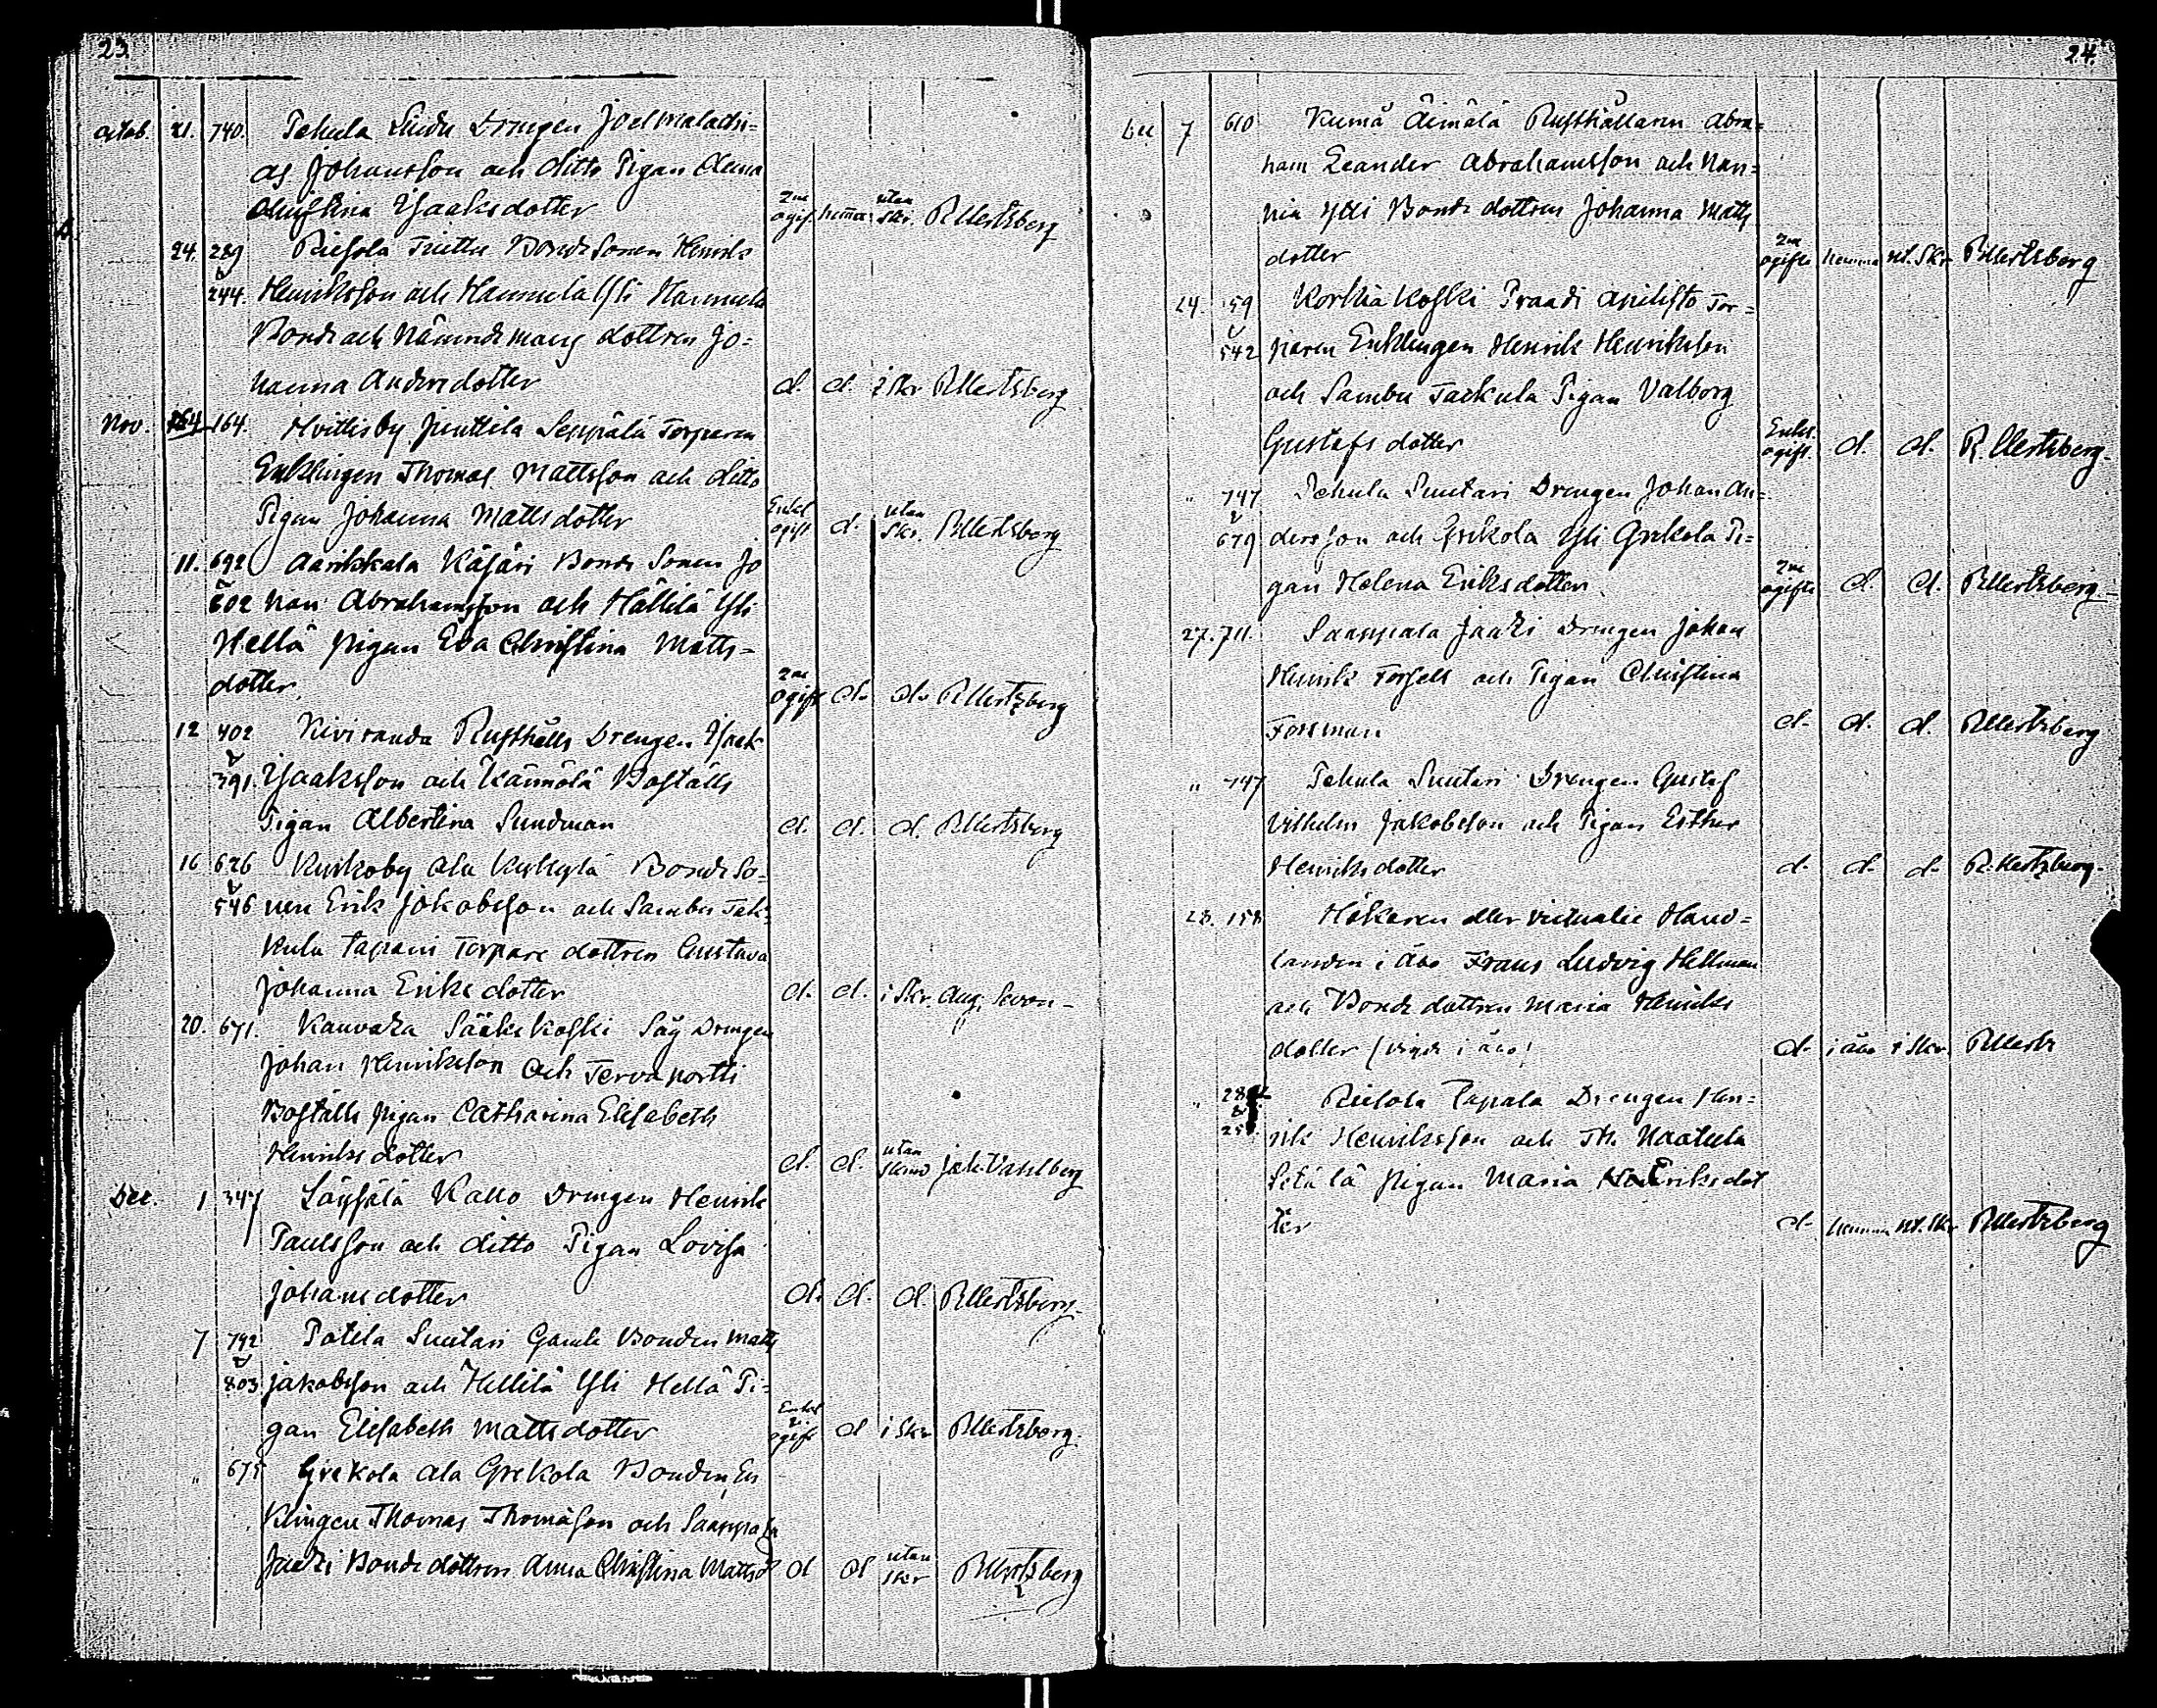 23.
octob. 21. 740. Tekula Lindu Drengen Joel Malachi=
as Johansson och ditto Pigan Anna
Christina Isaaksdotter 2ne ogift hema utan skr. R Mertsberg
24. 239 Rießola Bonde Sonen Henrik
& 244. Henriksson och Hannula Yli Hannula
Bonde och Nämndemans dottren Jo=
hanna Andersdotter d. d. i skr R Mertsberg
Nov. 164. Hvittisby Junttila Seppälä Torparen
Enklingen Thomas Mattsson och ditto
Pigan Johanna Mattsdotter Enkl ogift d. utan skr. R Mertsberg
11. 692 Aarikkala Käjäri Bonde Sonen Jo
& 602 han Abrahamsson och Hällilä Yli
Hellä pigan Eva Christina Matts=
dotter 2ne ogift d. d. R Mertzberg
12 402 Kiviranda Rusthålls Drengen Isaak
& 391. Isaaksson och Kännölä Boställs
Pigan Albertina Sundman d. d. d. R Mertsberg
16 626 Kurkoby Ala Kyhylä Bonde So=
& 546 nen Erik Jakobsson och Sambu Tak=
kula Tapani Torpare dottren Gustava
Johanna Eriks dotter d. d. i skr. Aug. Sevon-
20. 671. Kauvatza Sääkskoski Såg Drengen
Johan Henriksson och Tervaportti
Boställs pigan Catharina Elisabeth
Henriks dotter d. d. utan skr Jak. Vahlberg
Dec. 1 347 Läysälä Kallo Drengen Henrik
Paulsson och ditto Pigan Lovisa
Johans dotter d. d. d. R Mertsberg-
7 792 Potila Suutari Gamle Bonden Matts
& 803 Jakobsson och Hellilä Yli Hellä Pi=
gan Elisabeth Mattsdotter Enkl & ogift d i skr R Mertzberg.
" 675 Grekola Ala Grekola Bonden, En
klingen Thomas Thomasson och Saappala
Jaaki Bonde dottren Anna Christina Mattsd d d utan skr R Mertsberg
24.
Dec 7 610 Kumä Äimälä Rusthållaren Abra=
ham Leander Abrahamsson och Nan=
nia Yli Bonde dottren Johanna Matts
dotter 2ne ogifte hemma ut. skr R Mertsberg
24. 59 Korkiakoski Praadi Anilisto Tor=
& 542 paren Enklingen Henrik Henriksson
och Sambu Takkula Pigan Valborg
Gustafs dotter Enkl. ogift. d. d. R. Mertsberg.
" 747 Tekula Suutari Drengen Johan An=
& 679 dersson och Grekola Yli Grekola Pi=
gan Helena Eriksdotter. 2ne ogifte d. d. R Mertsberg.-
27. 711. Saappala Jaaki Drengen Johan
Henrik Forsell och Pigan Christina
Forsman d. d. d. R Mertsberg
" 747 Tekula Suutari Drengen Gustaf
Vilhelm Jakobsson och Pigan Esther
Henriks dotter d. d. d. R. Mertzberg.
28. 158 Hökaren eller victualie Hand=
landen i Åbo Frans Ludvig Hellman
och Bonde dottren Maria Henriks
dotter (vigde i Åbo) d. i Åbo i skr. R Mertz
" Riesola Papala Drengen Hen=
rik Henriksson och Naatula
Setälä pigan Maria Eriksdot
ter d. hemma ut. skr R Mertzberg